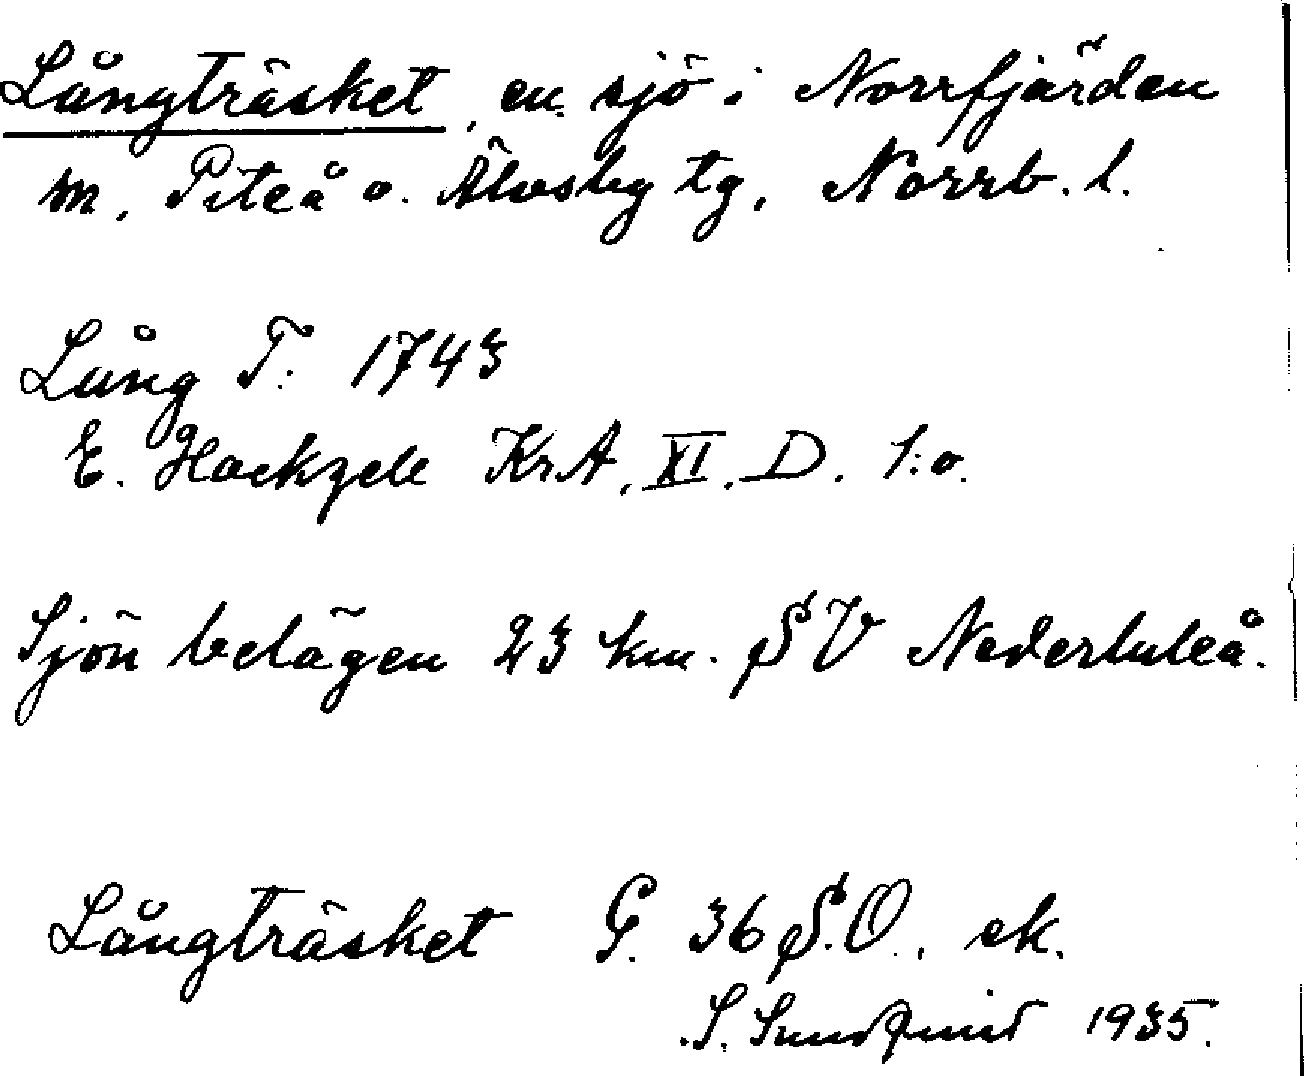 Långträsket, en sjö i Norrfjärden
m. Piteå o. Älvsby tg, Norrb. l.
Lång T: 1743
E. Hackzell KrA, XI. D. 1:o.
Sjön belägen 23 km. SV Nederluleå.
Långträsket G. 36 S.O., ek.
S. Sundqvist 1935.